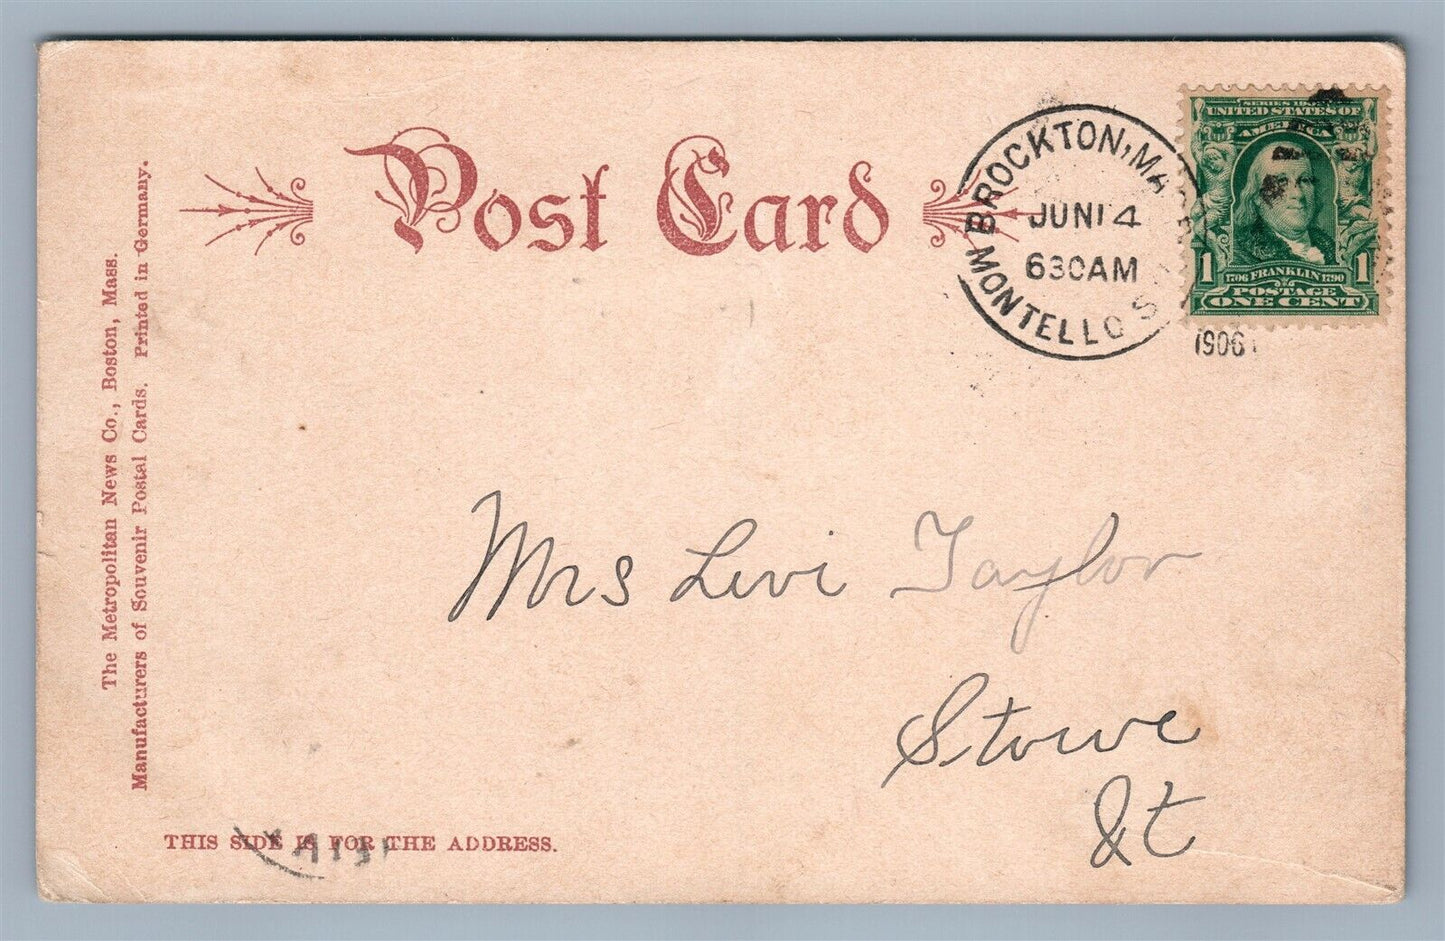 Post Card
BROCKTON, MASS.
JUN 14
630AM
MONTELLO ST
1906
SERIES 1902
UNITED STATES OF
AMERICA
1706 FRANKLIN 1790
1 POSTAGE 1
ONE CENT
The Metropolitan News Co., Boston, Mass.
Manufacturers of Souvenir Postal Cards. Printed in Germany.
Mrs Levi Taylor
Stowe
Vt
THIS SIDE IS FOR THE ADDRESS.